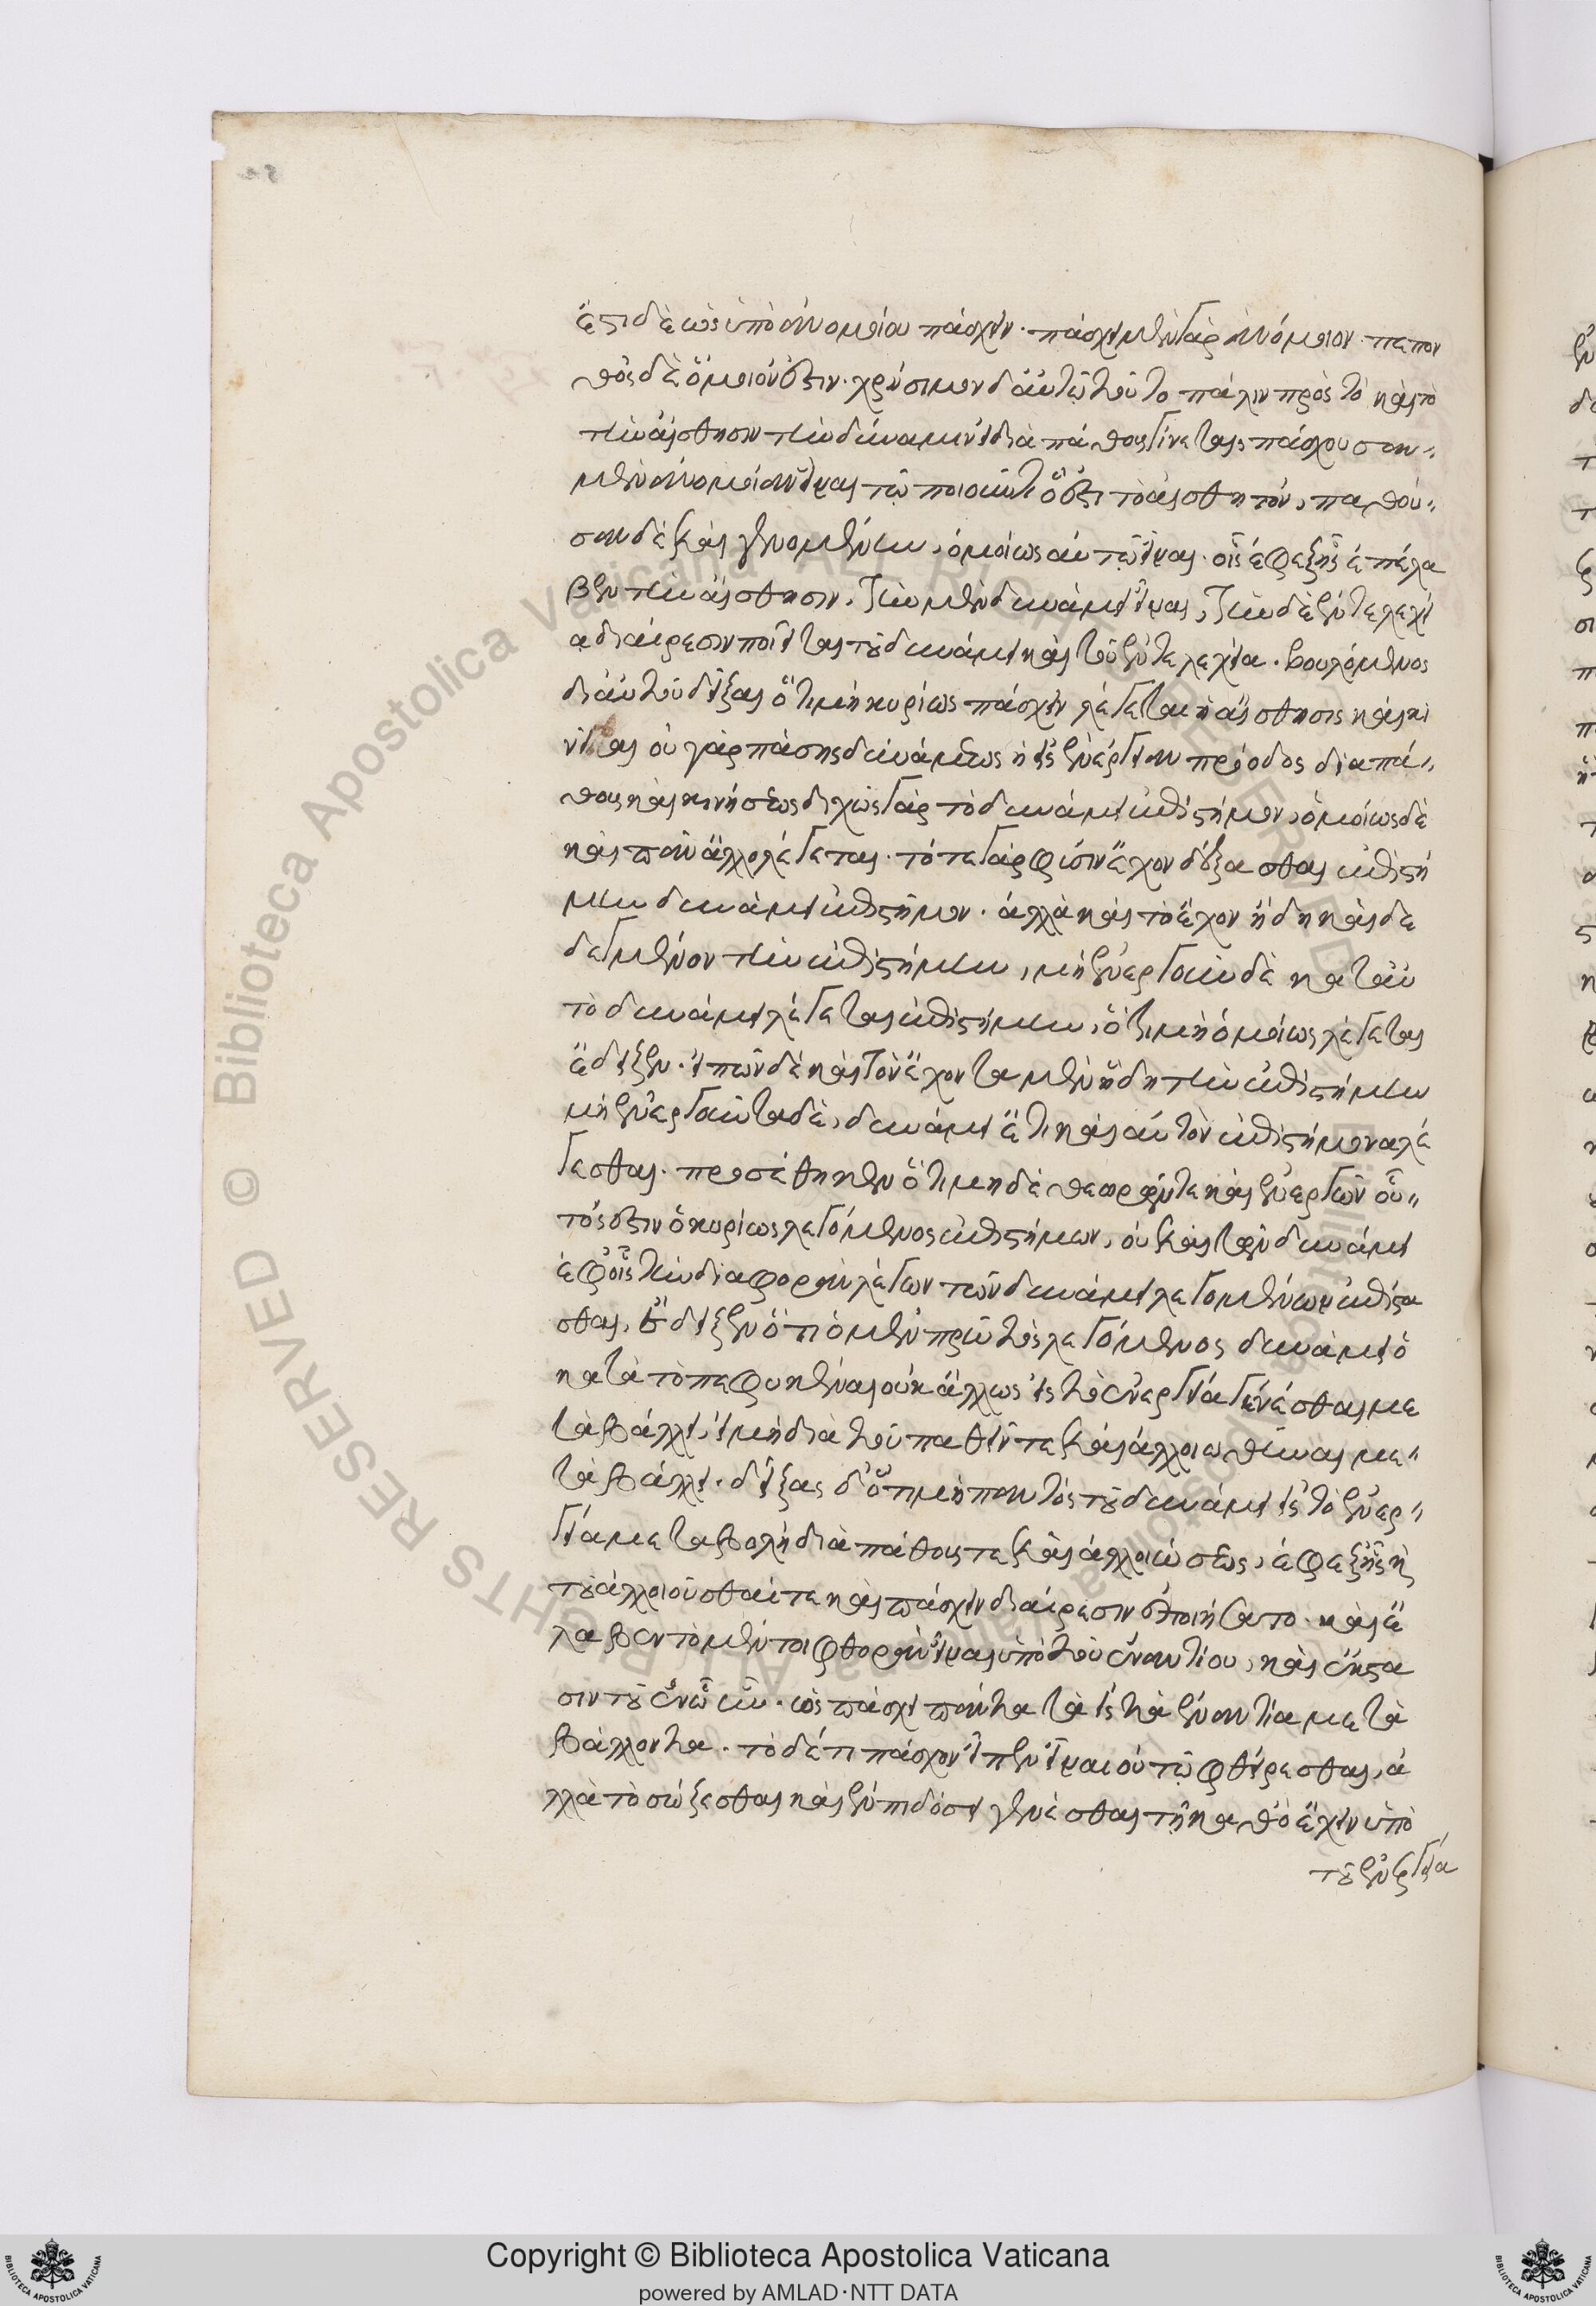 ἔστι δὲ ὡς ὑπὸ ἀνομοίου πάσχειν· πάσχει μὲν γὰρ ἀνόμοιον· πεπον
θὸς δὲ ὅμοιόν ἐστιν· χρήσιμον δ' αὐτῷ τοῦτο πάλιν πρὸς τὸ κατὰ
τὴν αἴσθησιν τὴν δύναμιν εἰ διὰ πάθους γίνεται, πάσχουσαν
μὲν ἀνομοίαν εἶναι τῷ ποιοῦντι ὅ ἐστι τὸ αἰσθητόν, παθοῦ
σαν δὲ καὶ γενομένην, ὁμοίως αὐτῷ εἶναι· οἷς ἐφεξῆς ἐπέλα
βεν τὴν αἴσθησιν, τὴν μὲν δυνάμει εἶναι, τὴν δὲ ἐντελεχεί
α διαίρεσιν ποιεῖται τοῦ δυνάμει καὶ τοῦ ἐντελεχεία· βουλόμενος
δι' αὐτοῦ δεῖξαι ὅτι μὴ κυρίως πάσχειν λέγεται ἡ αἴσθησις καὶ κι
νεῖσθαι οὐ γὰρ πάσης δυνάμεως ἡ εἰς ἐνέργειαν πρόοδος διὰ πά
θους καὶ κινήσεως διχῶς γὰρ τὸ δυνάμει ἐπιστήμον, ὁμοίως δὲ
καὶ πᾶν ἄλλο λέγεται· τό τε γὰρ φύσιν ἔχον δέξασθαι ἐπιστή
μην δυνάμει ἐπιστῆμον· ἀλλὰ καὶ τὸ ἔχον ἤδη καὶ δε
δεγμένον τὴν ἐπιστήμην, μὴ ἐνεργοῦν δὲ κατ' αὐ
τὸ δυνάμει λέγεται ἐπιστήμην, ὅτι μὴ ὁμοίως λέγεται
ἔδειξεν· εἰπὼν δὲ καὶ τὸν ἔχοντα μὲν ἤδη τὴν ἐπιστήμην
μὴ ἐνεργοῦντα δὲ, δυνάμει ἔτι καὶ αὐτὸν ἐπιστήμονα λέ
γεσθαι· προσέθηκεν ὅτι μηδὲ θεωρῶν τε καὶ ἐνεργῶν οὗ
τός ἐστιν ὁ κυρίως λεγόμενος ἐπιστήμων, οὐ καὶ τῶν δυνάμει
ἐφ' οἷς τὴν διαφορὰν λέγων τῶν δυνάμει λεγομένων ἐπίστα
σθαι, ἔδειξεν ὅτι ὁ μὲν πρῶτος λεγόμενος δυνάμει ὁ
κατὰ τὸ πεφυκέναι οὐκ ἄλλως εἰς τὸ ἐνεργείᾳ γενέσθαι με
ταβάλλει, εἰ μὴ διὰ τοῦ παθεῖν τε καὶ ἀλλοιωθῆναι με
ταβάλλει· δείξας δ' ὅτι μὴ παντὸς τοῦ δυνάμει εἰς τὸ ἐνερ
γείᾳ μεταβολὴ διὰ πάθους τε καὶ ἀλλοιώσεως, ἐφεξῆς ἢ
τοῦ ἀλλοιοῦσθαί τε καὶ πάσχειν διαίρεσιν ἐποιήσατο· καὶ ἔ
λαβεν τὸ μέν τοι φθορὰν εἶναι ὑπὸ τοῦ ἐναντίου, καὶ ἔκστα
σιν τοῦ ἐν ᾧ ἐν· ὡς πάσχει πάντα τὰ εἰς τὰ ἐναντία μετα
βάλλοντα· τὸ δέ τι πάσχον εἶπεν εἶναι οὐ τῷ φθείρεσθαι, ἀ
λλὰ τὸ σώζεσθαι καὶ ἐν ἐπιδόσει γενέσθαι τῇ καθ' ὃ ἔχειν ὑπὸ
τοῦ ἐνεργεία
Copyright © Biblioteca Apostolica Vaticana
powered by AMLAD·NTT DATA